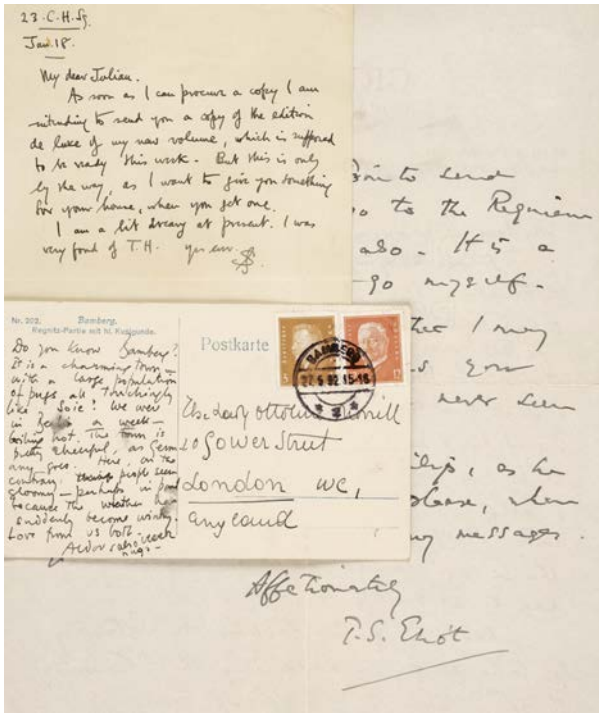 23. C. H. Sq.
Jan. 18.
My dear Julian.
As soon as I can procure a copy I am
intending to send you a copy of the edition
de luxe of my new volume, which is supposed
to be ready this week. But this is only
by the way, as I want to give you something
for your house, when you get one.
I am a bit dreary at present. I was
very fond of T.H. yrs ever
SS
to send
to the Requiem
also. It is a
go myself.
I may
you
never seen
as he
please, when
messages.
Affectionately
T. S. Eliot
Nr. 202. Bamberg.
Regnitz-Partie mit hl. Kunigunde.
Postkarte
BAMBERG
27.5.32.15-16
Do you know Bamberg?
It is a charming town –
with a large population
of pugs all touchingly
like Soie! We were
in Berlin a week –
boiling hot. The town is
pretty cheerful, as
any goes. Here, on the
contrary, people seem
gloomy – perhaps in part
because the weather has
suddenly become wintry.
Love from us both.
Aldous also
The Lady Ottoline Morrell
10 Gower Street
London WC,
England